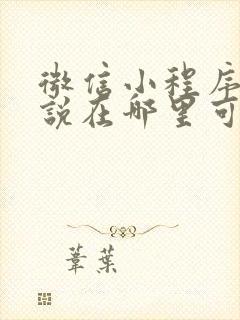 微信小程序
说在哪里可
葦葉